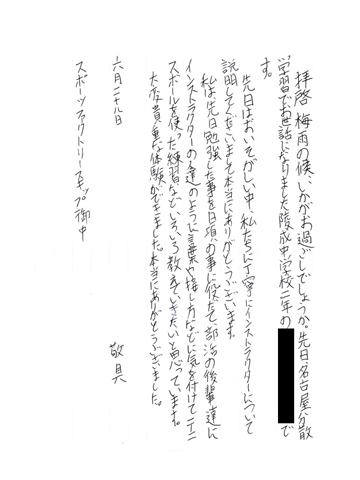 拝啓 梅雨の候、いかがお過ごしでしょうか。先日、名古屋分散
学習でお世話になりました陵成中学校二年の で
す。
先日はおいそがしい中、私たちに丁寧にインストラクターについて
説明してくださいまして本当にありがとうございます。
私は先日勉強した事を日頃の事に役だて、部活の後輩達に
インストラクターの人達のように言葉や接し方などに気を付けてテニ
スボールを使った練習など、いろいろ教えていきたいと思っています。
大変貴重な体験ができました。本当にありがとうございました。
敬具
六月二十八日
スポーツファクトリースキップ御中